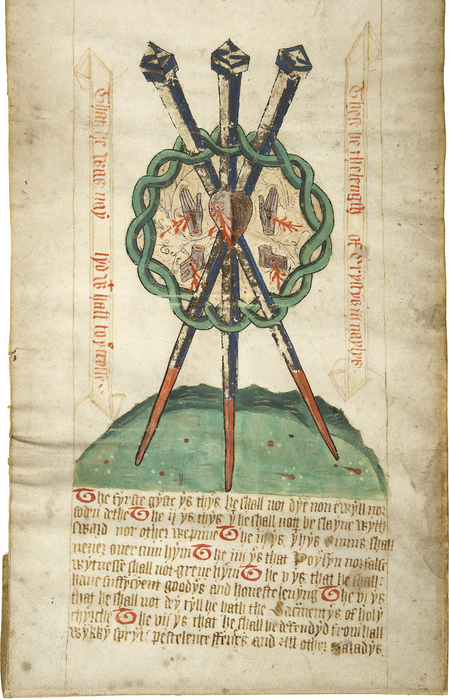 These be the length of Crystys iij naylys
The fyrste gyfte ys thys he shall not dye non evyll nor
soden dethe The ii ys thys he shall not be slayne wyth
sward nor other wepun The iii ys thys Enmis shall
never over cum hym The iiii ys that Poyson nor false
wytnesse shall not greve hym The v ys that he shall
have suffycyent goodys and honeste levyng The vi ys
that he shall not dey tyll he hath the Sacrmentys of holy
chyrche The vii ys that he shall be defendyd from hall
wykky spryts pestelence ffevers and all other maladys